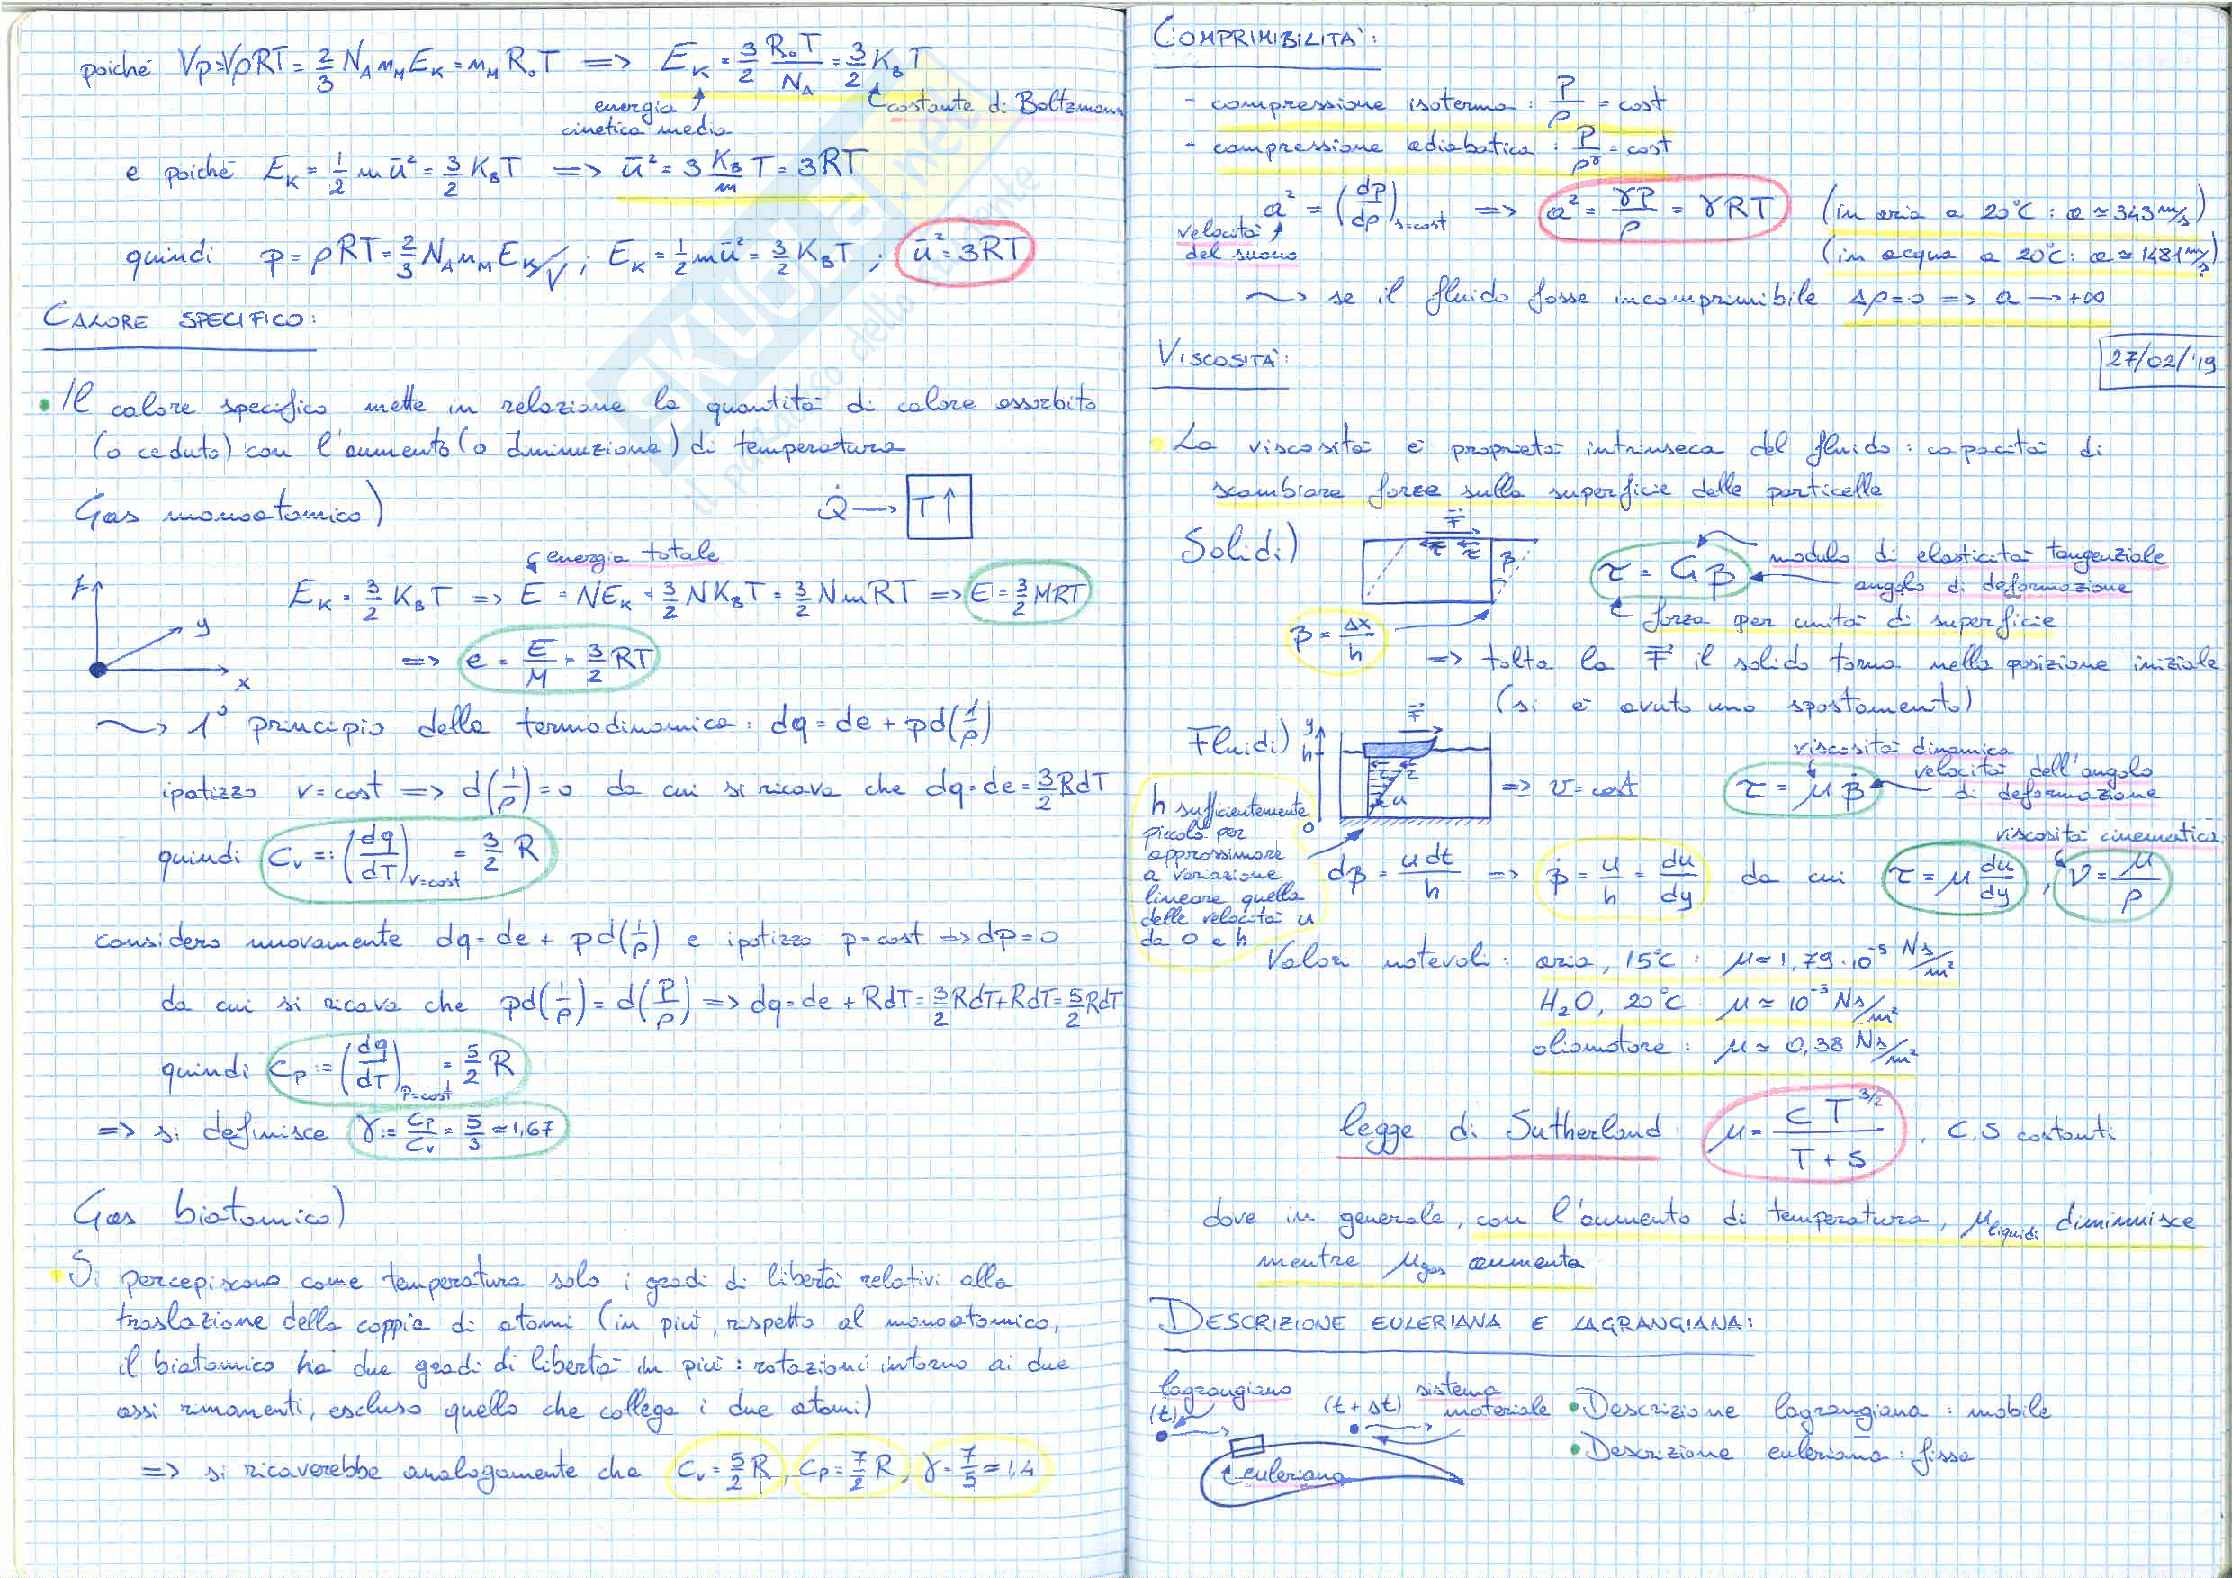 poiché Vp=VρRT=2/3 N_A n_M E_K = n_M R₀T => E_K = 3/2 R₀T/N_A = 3/2 K_B T
energia cinetica media
costante di Boltzmann
e poiché E_K = 1/2 m ū² = 3/2 K_B T => ū² = 3 K_B/m T = 3RT
quindi p = ρRT = 2/3 N_A n_M E_K/V ; E_K = 1/2 m ū² = 3/2 K_B T ; ū² = 3RT
CALORE SPECIFICO:
• Il calore specifico mette in relazione la quantità di calore assorbito
(o ceduto) con l'aumento (o diminuzione) di temperatura
Gas monoatomico)
Q̇ → T↑
energia totale
z
y
x
E_K = 3/2 K_B T => E = NE_K = 3/2 NK_B T = 3/2 NmRT => E = 3/2 MRT
=> e = E/M = 3/2 RT
~> 1° principio della termodinamica: dq = de + pd(1/ρ)
ipotizzo v=cost => d(1/ρ)=0 da cui si ricava che dq=de=3/2 RdT
quindi C_v =: (dq/dT)_v=cost = 3/2 R
considero nuovamente dq = de + pd(1/ρ) e ipotizzo p=cost => dp=0
da cui si ricava che pd(1/ρ) = d(p/ρ) => dq=de+RdT=3/2 RdT+RdT=5/2 RdT
quindi C_p := (dq/dT)_p=cost = 5/2 R
=> si definisce γ := C_p/C_v = 5/3 ≈ 1,67
Gas biatomico)
• Si percepiscono come temperatura solo i gradi di libertà relativi alla
traslazione della coppia di atomi (in più, rispetto al monoatomico,
il biatomico ha due gradi di libertà in più: rotazioni intorno ai due
assi rimanenti, escluso quello che collega i due atomi)
=> si ricaverebbe analogamente che C_v = 5/2 R, C_p = 7/2 R, γ = 7/5 = 1,4
COMPRIMIBILITÀ:
- compressione isoterma: p/ρ = cost
- compressione adiabatica: p/ρ^γ = cost
velocità del suono
a² = (dp/dρ)_s=cost => a² = γp/ρ = γRT (in aria a 20°C: a ≈ 343 m/s)
(in acqua a 20°C: a ≈ 1481 m/s)
~> se il fluido fosse incomprimibile Δρ=0 => a → +∞
27/02/'19
VISCOSITÀ:
• La viscosità è proprietà intrinseca del fluido: capacità di
scambiare forze sulla superficie delle particelle
Solidi)
F
τ τ
β
τ = Gβ
modulo di elasticità tangenziale
angolo di deformazione
forza per unità di superficie
β = Δx/h
=> tolta la F il solido torna nella posizione iniziale
(si è avuto uno spostamento)
Fluidi)
y
h
0
F
τ τ
u
=> v=cost
τ = μβ̇
viscosità dinamica
velocità dell'angolo di deformazione
h sufficientemente
piccolo per
approssimare
a variazione
lineare quella
delle velocità u
da 0 a h
dβ = u dt/h => β̇ = u/h = du/dy da cui τ = μ du/dy, ν = μ/ρ
viscosità cinematica
Valori notevoli: aria, 15°C: μ ≈ 1,79·10⁻⁵ Ns/m²
H₂O, 20°C μ ≈ 10⁻³ Ns/m²
olio motore: μ ≈ 0,38 Ns/m²
legge di Sutherland μ = C T^3/2 / T + S, C, S costanti
dove in generale, con l'aumento di temperatura, μ_liquidi diminuisce
mentre μ_gas aumenta
DESCRIZIONE EULERIANA E LAGRANGIANA:
lagrangiano
(t)
(t + Δt)
sistema materiale
euleriano
• Descrizione lagrangiana: mobile
• Descrizione euleriana: fissa